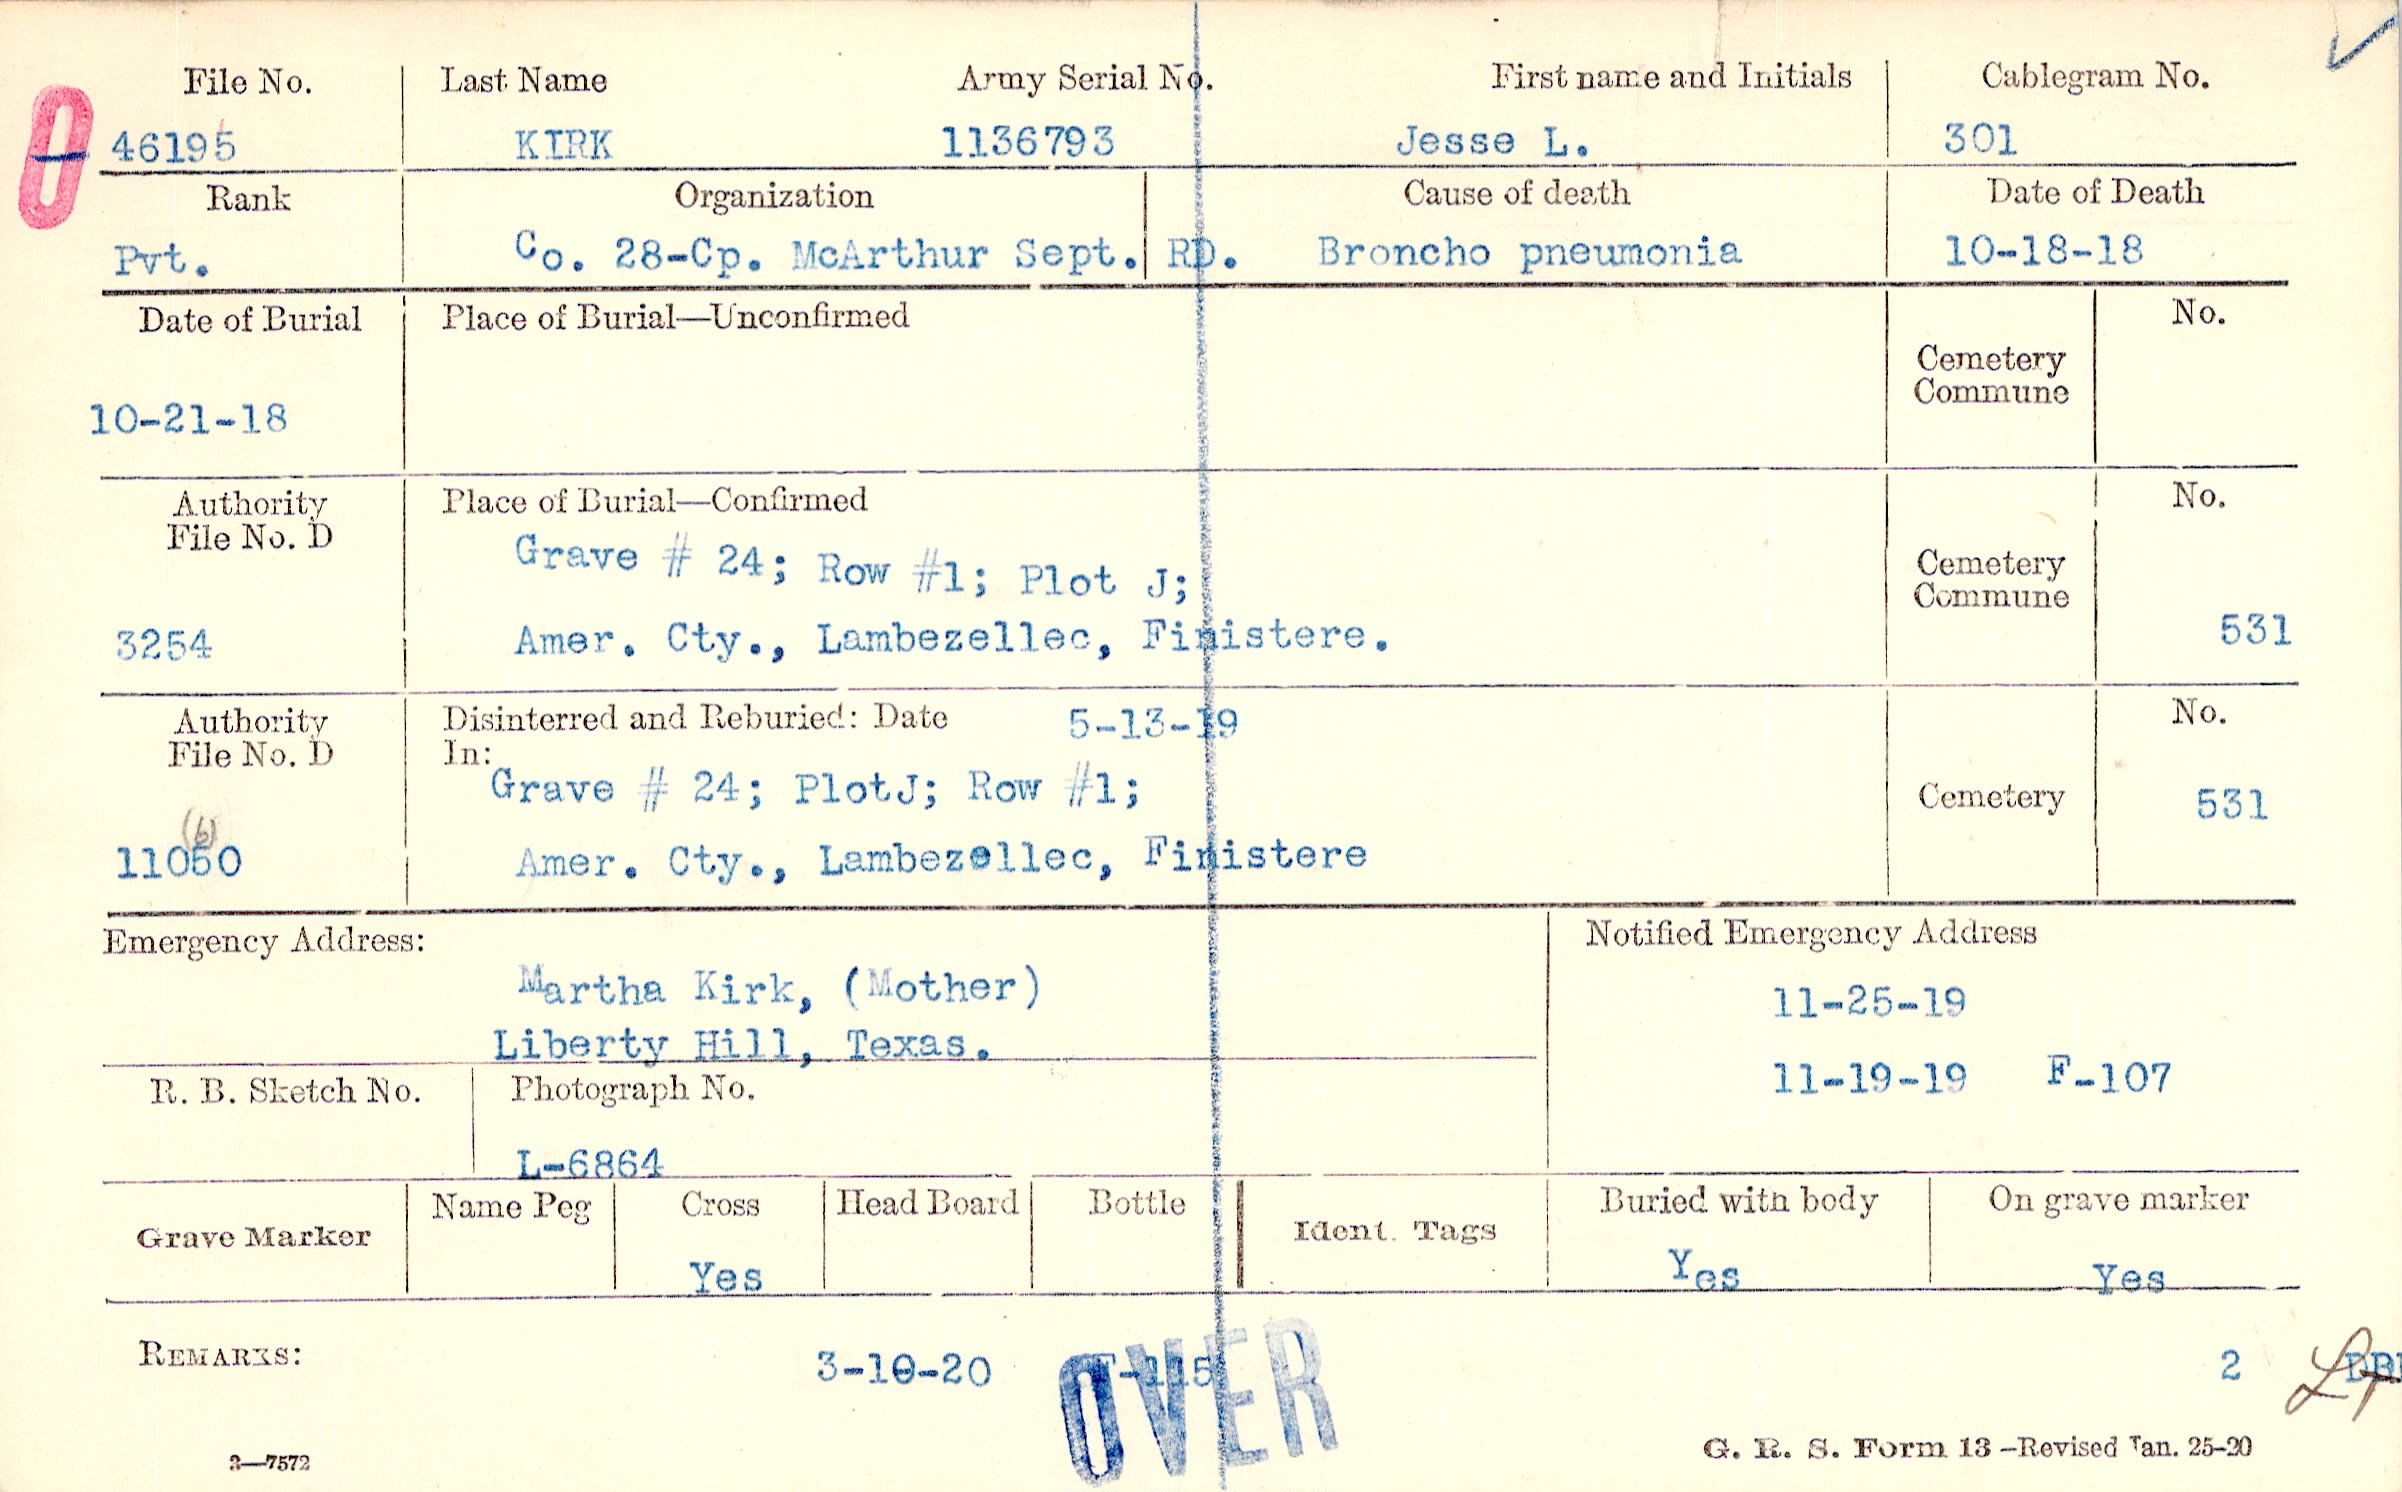 File No. Last Name Army Serial No. First name and Initials Cablegram No.
0 46195 KIRK 1136793 Jesse L. 301
Rank Organization Cause of death Date of Death
Pvt. Co. 28-Cp. McArthur Sept. RD. Broncho pneumonia 10-18-18
Date of Burial Place of Burial—Unconfirmed No.
Cemetery
Commune
10-21-18
Authority Place of Burial—Confirmed No.
File No. D
Grave # 24; Row #1; Plot J;
Cemetery
Commune
3254 Amer. Cty., Lambezellec, Finistere. 531
Authority Disinterred and Reburied: Date 5-13-19 No.
File No. D In:
Grave # 24; PlotJ; Row #1; Cemetery 531
(b)
11050 Amer. Cty., Lambezellec, Finistere
Emergency Address: Notified Emergency Address
Martha Kirk, (Mother) 11-25-19
Liberty Hill, Texas.
11-19-19 F-107
R. B. Sketch No. Photograph No.
L-6864
Grave Marker Name Peg Cross Head Board Bottle Ident. Tags Buried with body On grave marker
Yes Yes Yes
REMARKS: 3-10-20 -115 2
OVER
3—7572 G. R. S. Form 13—Revised Jan. 25-20